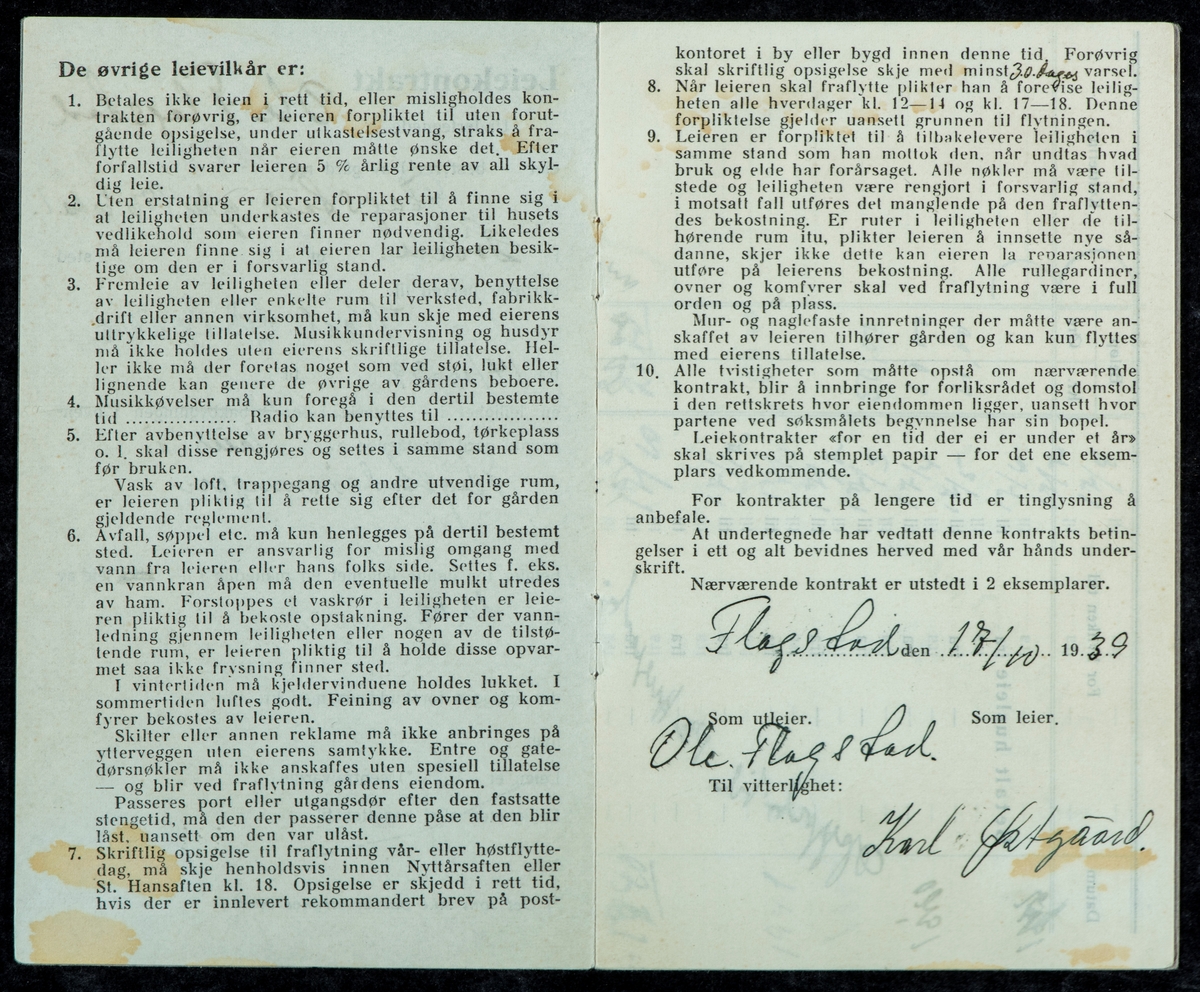 De øvrige leievilkår er:
1. Betales ikke leien i rett tid, eller misligholdes kon-
trakten forøvrig, er leieren forpliktet til uten forut-
gående opsigelse, under utkastelsestvang, straks å fra-
flytte leiligheten når eieren måtte ønske det. Efter
forfallstid svarer leieren 5 % årlig rente av all skyl-
dig leie.
2. Uten erstatning er leieren forpliktet til å finne sig i
at leiligheten underkastes de reparasjoner til husets
vedlikehold som eieren finner nødvendig. Likeledes
må leieren finne sig i at eieren lar leiligheten besik-
tige om den er i forsvarlig stand.
3. Fremleie av leiligheten eller deler derav, benyttelse
av leiligheten eller enkelte rum til verksted, fabrikk-
drift eller annen virksomhet, må kun skje med eierens
uttrykkelige tillatelse. Musikkundervisning og husdyr
må ikke holdes uten eierens skriftlige tillatelse. Hel-
ler ikke må der foretas noget som ved støi, lukt eller
lignende kan genere de øvrige av gårdens beboere.
4. Musikkøvelser må kun foregå i den dertil bestemte
tid .................. Radio kan benyttes til ..................
5. Efter avbenyttelse av bryggerhus, rullebod, tørkeplass
o. l. skal disse rengjøres og settes i samme stand som
før bruken.
Vask av loft, trappegang og andre utvendige rum,
er leieren pliktig til å rette sig efter det for gården
gjeldende reglement.
6. Avfall, søppel etc. må kun henlegges på dertil bestemt
sted. Leieren er ansvarlig for mislig omgang med
vann fra leieren eller hans folks side. Settes f. eks.
en vannkran åpen må den eventuelle mulkt utredes
av ham. Forstoppes et vaskrør i leiligheten er leie-
ren pliktig til å bekoste opstakning. Fører der vann-
ledning gjennem leiligheten eller nogen av de tilstø-
tende rum, er leieren pliktig til å holde disse opvar-
met saa ikke frysning finner sted.
I vintertiden må kjeldervinduene holdes lukket. I
sommertiden luftes godt. Feining av ovner og kom-
fyrer bekostes av leieren.
Skilter eller annen reklame må ikke anbringes på
ytterveggen uten eierens samtykke. Entre og gate-
dørsnøkler må ikke anskaffes uten spesiell tillatelse
— og blir ved fraflytning gårdens eiendom.
Passeres port eller utgangsdør efter den fastsatte
stengetid, må den der passerer denne påse at den blir
låst, uansett om den var ulåst.
7. Skriftlig opsigelse til fraflytning vår- eller høstflytte-
dag, må skje henholdsvis innen Nyttårsaften eller
St. Hansaften kl. 18. Opsigelse er skjedd i rett tid,
hvis der er innlevert rekommandert brev på post-
kontoret i by eller bygd innen denne tid. Forøvrig
skal skriftlig opsigelse skje med minst 30 dages varsel.
8. Når leieren skal fraflytte plikter han å forevise leilig-
heten alle hverdager kl. 12—14 og kl. 17—18. Denne
forpliktelse gjelder uansett grunnen til flytningen.
9. Leieren er forpliktet til å tilbakelevere leiligheten i
samme stand som han mottok den, når undtas hvad
bruk og elde har forårsaget. Alle nøkler må være til-
stede og leiligheten være rengjort i forsvarlig stand,
i motsatt fall utføres det manglende på den fraflytten-
des bekostning. Er ruter i leiligheten eller de til-
hørende rum itu, plikter leieren å innsette nye så-
danne, skjer ikke dette kan eieren la reparasjonen
utføre på leierens bekostning. Alle rullegardiner,
ovner og komfyrer skal ved fraflytning være i full
orden og på plass.
Mur- og naglefaste innretninger der måtte være an-
skaffet av leieren tilhører gården og kan kun flyttes
med eierens tillatelse.
10. Alle tvistigheter som måtte opstå om nærværende
kontrakt, blir å innbringe for forliksrådet og domstol
i den rettskrets hvor eiendommen ligger, uansett hvor
partene ved søksmålets begynnelse har sin bopel.
Leiekontrakter «for en tid der ei er under et år»
skal skrives på stemplet papir — for det ene eksem-
plars vedkommende.
For kontrakter på lengere tid er tinglysning å
anbefale.
At undertegnede har vedtatt denne kontrakts betin-
gelser i ett og alt bevidnes herved med vår hånds under-
skrift.
Nærværende kontrakt er utstedt i 2 eksemplarer.
Flagstad den 17/10 1939
Som utleier. Som leier.
Ole Flagstad.
Til vitterlighet:
Karl Østgaard.